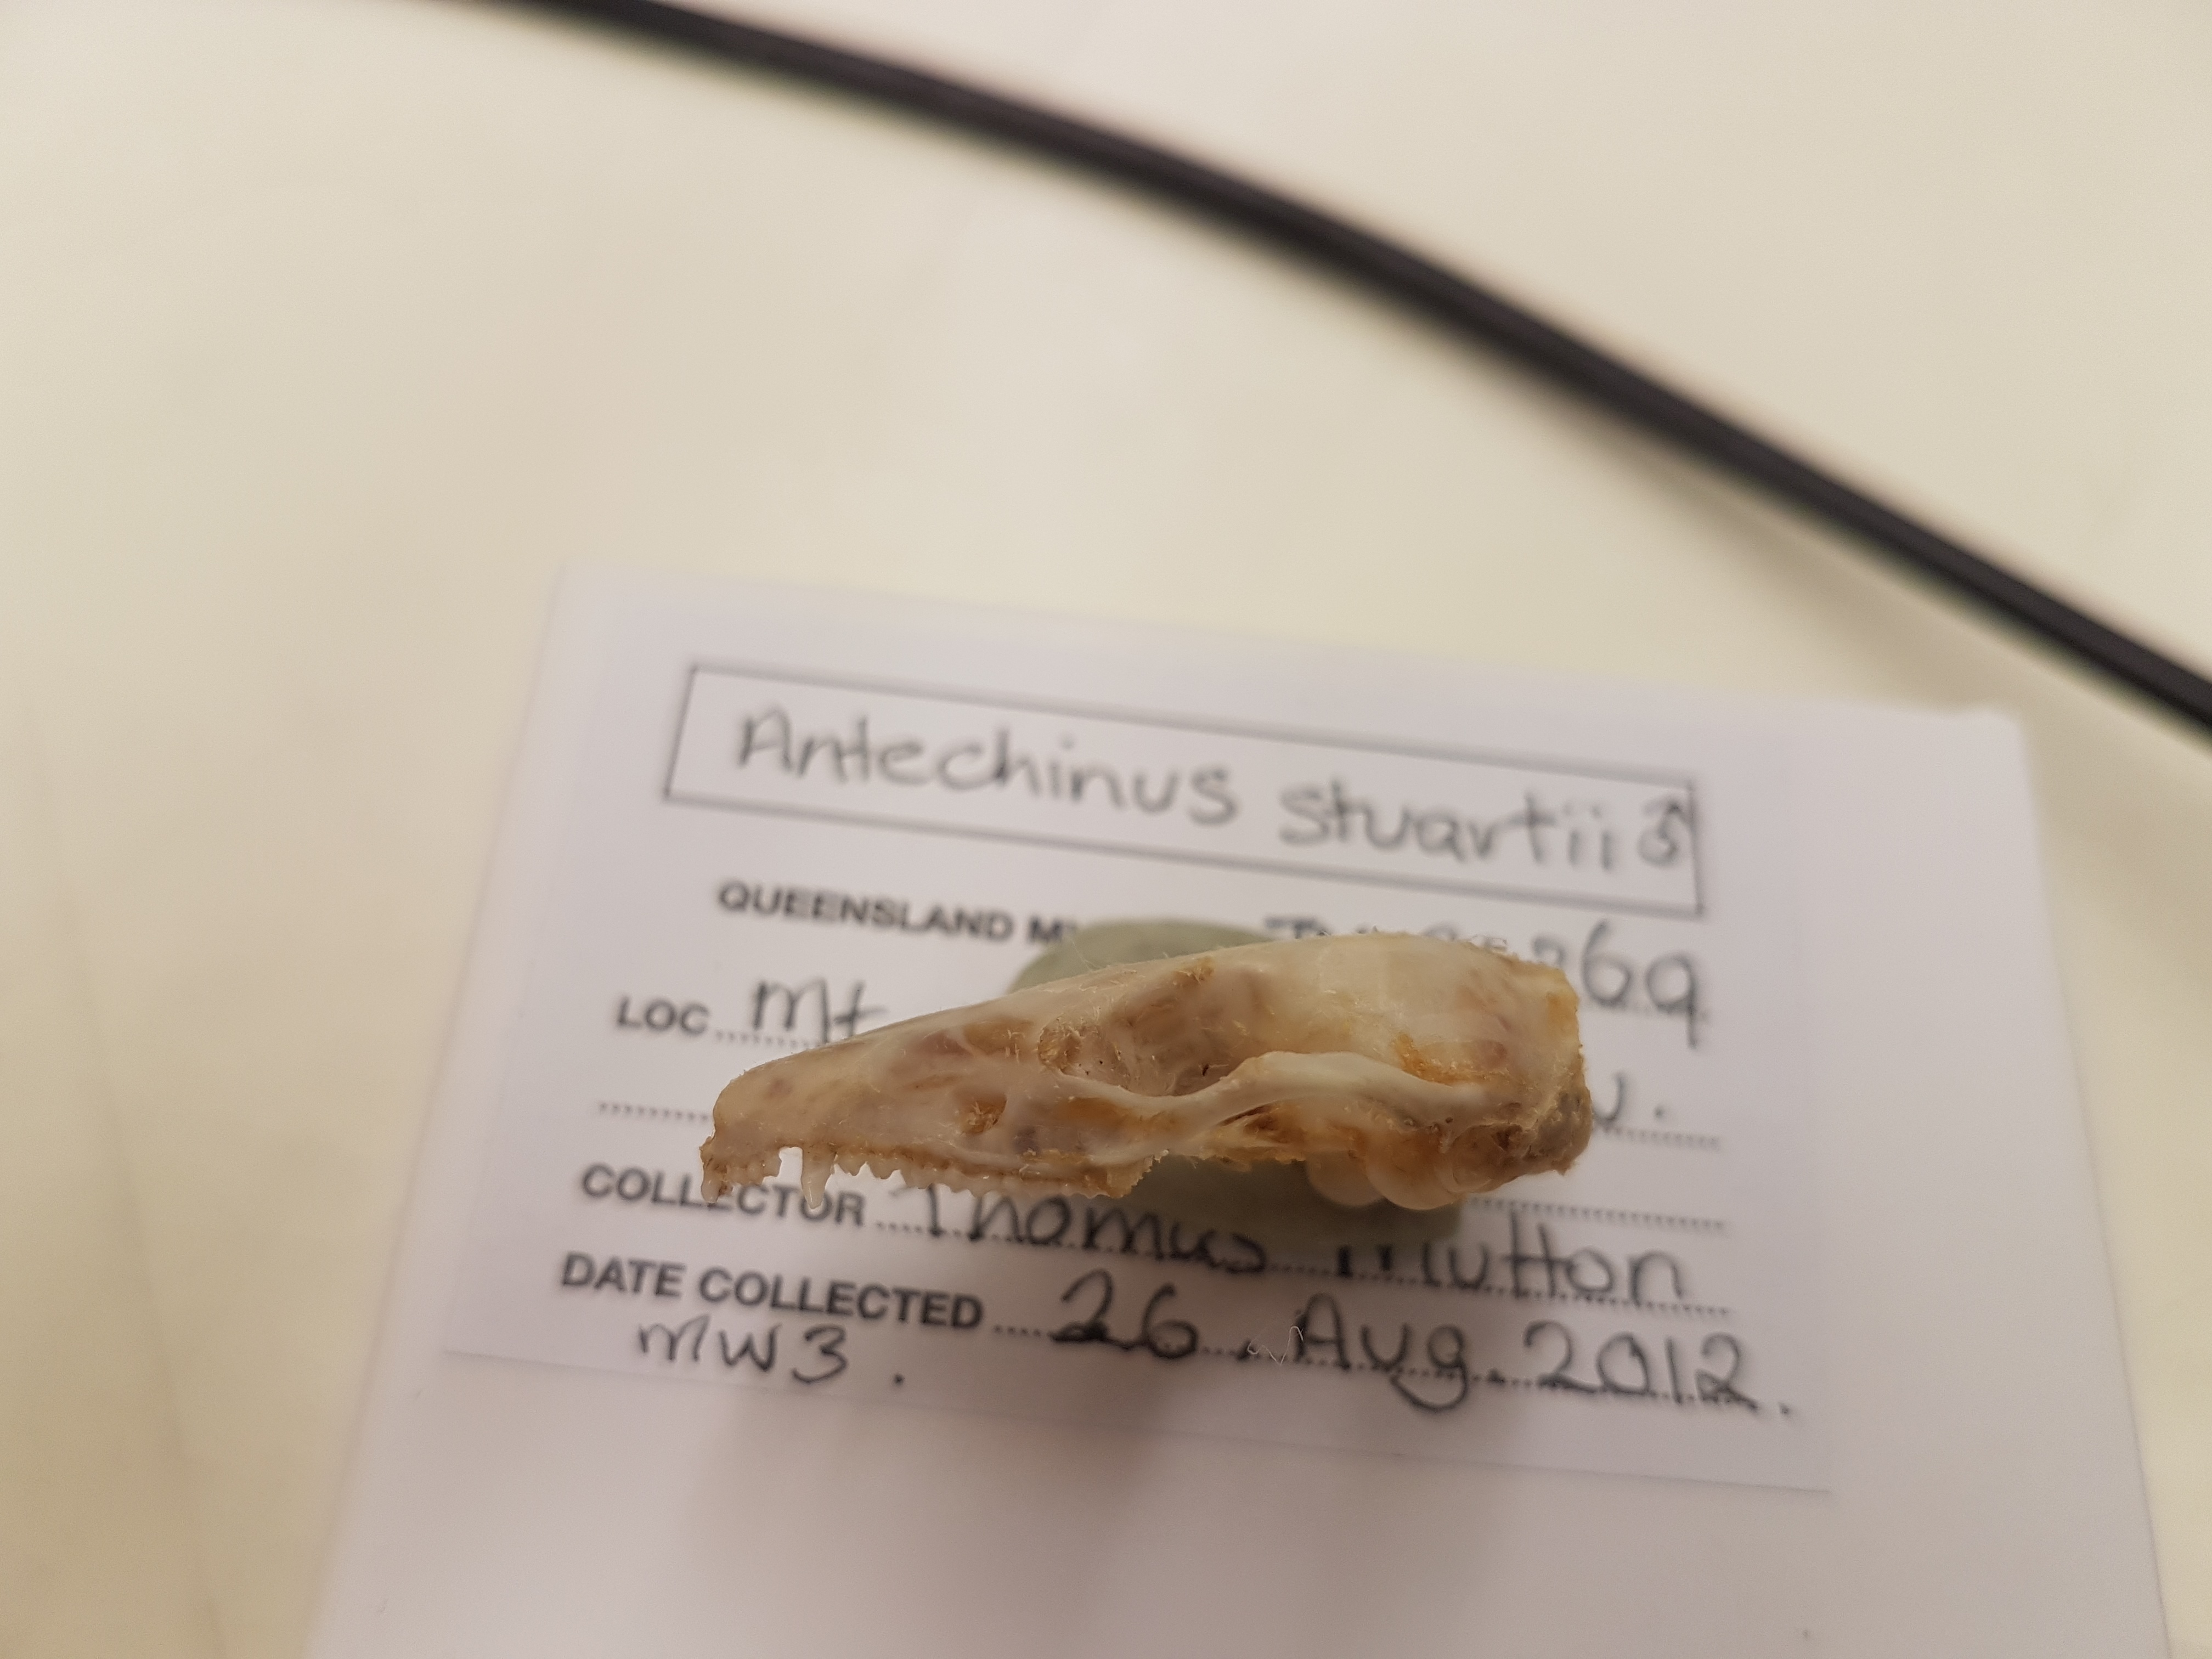 Antechinus stuartii ♂
QUEENSLAND
LOC Mt
COLLECTOR Thomas Mutton
DATE COLLECTED 26 Aug. 2012.
MW3.